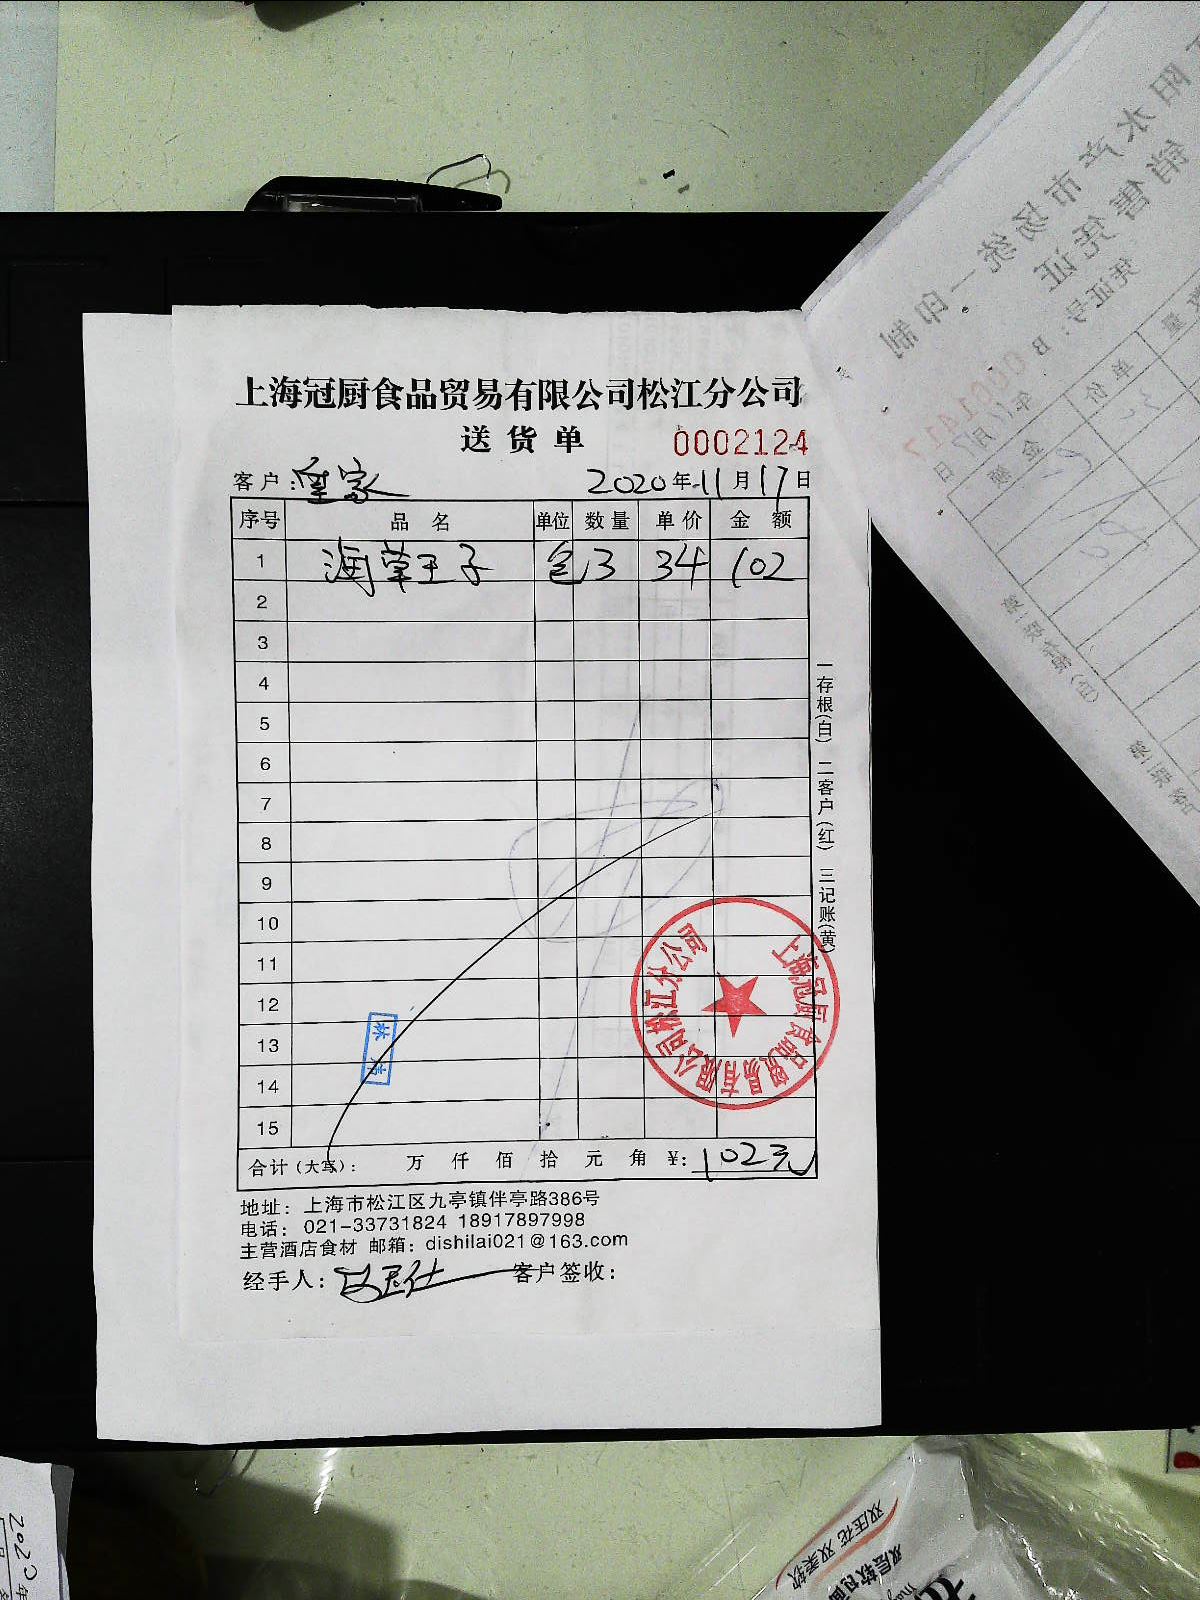 上海冠厨食品贸易有限公司松江分公司
送货单 0002124
客户: 皇家 2020年11月17日
序号 品名 单位 数量 单价 金额
1 王子 包 3 34 102
2
3
4
5
6
7
8
9
10
11
12
13
14
15
合计(大写): 万 仟 佰 拾 元 角 ¥: 102元
一存根(白) 二客户(红) 三记账(黄)
上海冠厨食品贸易有限公司松江分公司
地址: 上海市松江区九亭镇伴亭路386号
电话: 021-33731824 18917897998
主营酒店食材 邮箱: dishilai021@163.com
经手人: 客户签收:
阳水产市场统一印制
销售凭证
凭证号: B 0061417
年11月17日
单价
金额
2020年
双压花 双柔软
双层软包面